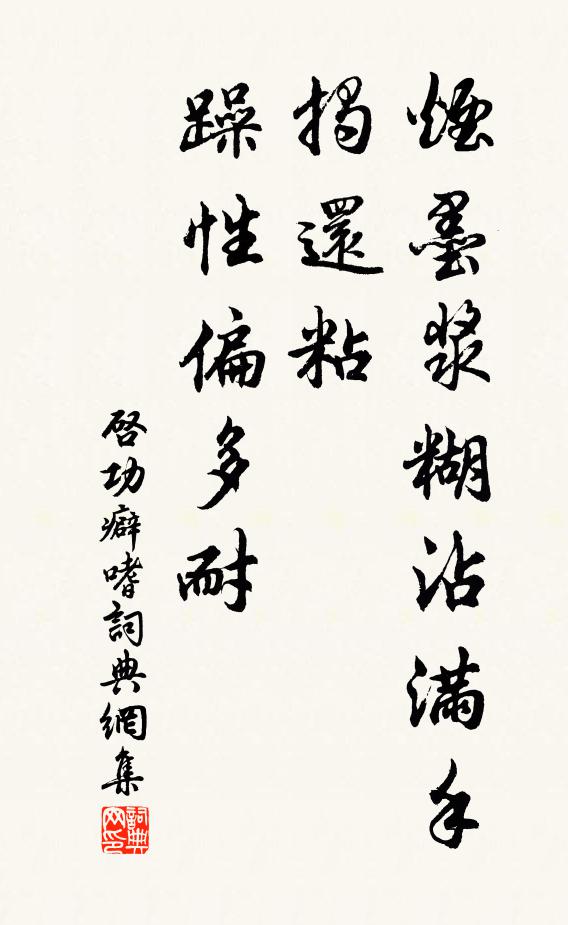 煙墨漿糊沾滿手
揭還粘
躁性偏多耐
啓功癖嗜詞典網集
詞典网印